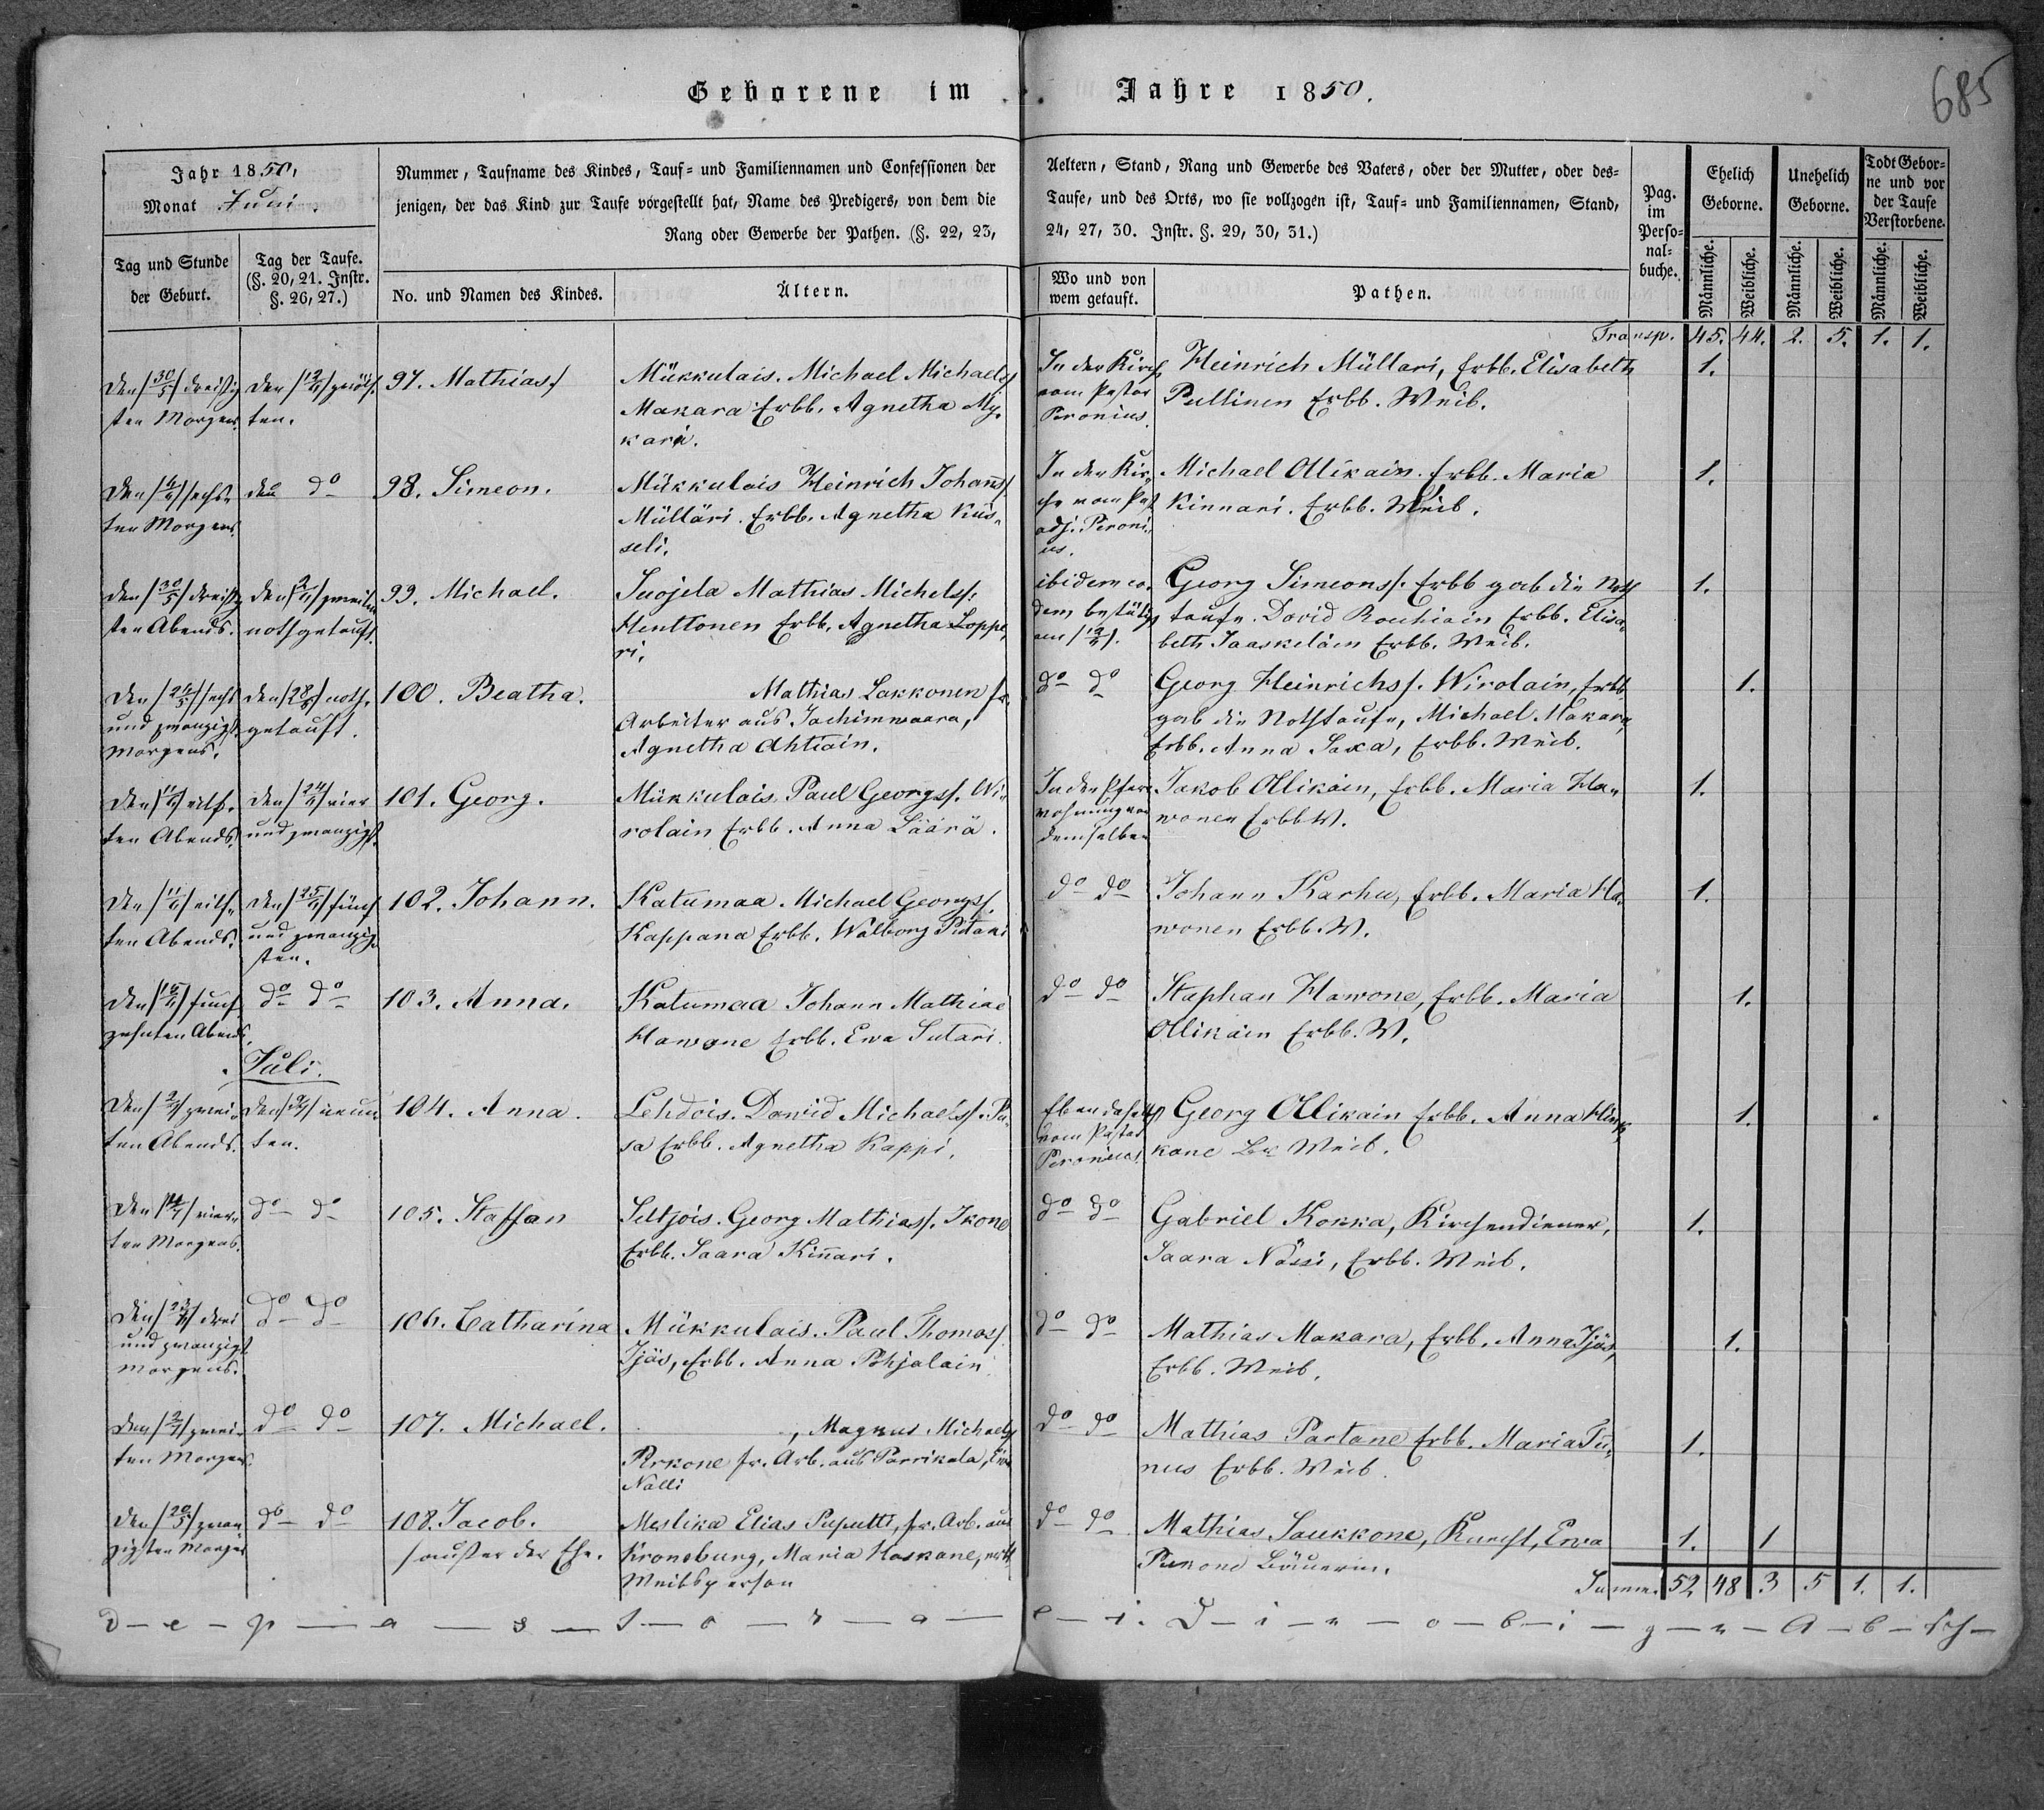 685
Geborene im Jahre 1850.
Jahr 1850,
Monat Juni.
Nummer, Taufname des Kindes, Tauf- und Familiennamen und Confessionen der
jenigen, der das Kind zur Taufe vorgestellt hat, Name des Predigers, von dem die
Rang oder Gewerbe der Pathen. (§. 22, 23,
Aeltern, Stand, Rang und Gewerbe des Vaters, oder der Mutter, oder des-
Taufe, und des Orts, wo sie vollzogen ist, Tauf- und Familiennamen, Stand,
24, 27, 30. Instr. §. 29, 30, 31.)
Tag und Stunde
der Geburt.
Tag der Taufe.
(§. 20, 21. Instr.
§. 26, 27.)
No. und Namen des Kindes.
Ältern.
Wo und von
wem getauft.
Pathen.
Pag.
im
Perso-
nal-
buche.
Ehelich
Geborne.
Unehelich
Geborne.
Todt Gebor-
ne und vor
der Taufe
Verstorbene.
Männliche.
Weibliche.
Männliche.
Weibliche.
Männliche.
Weibliche.
Transp. 45. 44. 2. 5. 1. 1.
Den /30/5/ dreißig
sten Morgens.
den /12/6/ zwölf
ten.
97. Mathias.
Mükkulais. Michael Michaels
Makara Erbb. Agnetha My-
kara.
In der Kirch
vom Pastor
Peronius.
Heinrich Müllari, Erbb. Elisabeth
Pullinen Erbb. Weib.
1.
sechs-
ten Morgens.
den do
98. Simeon.
Mükkulais Heinrich Johanns
Mülläri. Erbb. Agnetha Kus-
seli.
In der Kir-
che vom Past
adj. Peroni-
us.
Michael Ollikain. Erbb. Maria
Kinnari. Erbb. Weib.
1.
den /30/5/ dreißig
sten Abends.
den /2/6/ zweiten
nothgetauft.
99. Michael.
Suojela Mathias Michels.
Henttonen Erbb. Agnetha Loppe
ri.
ibidem eo
dem bestätigt
am /12/6/.
Georg Simeonss. Erbb gab die Noth
taufe. David Rouhiain Erbb. Elisa-
beth Jaaskeläin Erbb. Weib.
1.
sechs
und zwanzigst.
Morgens.
noth-
getauft.
100. Beatha.
Mathias Lakkonen fr.
Arbeiter aus Jachimwaara,
Agnetha Ahtiain.
do do
Georg Heinrichss. Wirolain, Erbb.
gab die Nothtaufe, Michael Makara,
Erbb. Anna Saxa, Erbb. Weib.
1.
den /11/6/ eilf-
ten Abends.
den /24/6/ vier
und zwanzigst.
101. Georg.
Mükkulais Paul Georgss. Wi-
rolain Erbb. Anna Läärä.
demselben
Jakob Ollikain, Erbb. Maria Ha-
wonen Erbb W.
1.
den /11/6/ eilf-
ten Abends.
den /25/6/ fünf
und zwanzig-
sten.
102. Johann.
Katumaa. Michael Georgss.
Kappana Erbb. Walborg Pitäri
do do
Johann Karhu, Erbb. Maria Ha-
wonen Erbb. W.
1.
den /15/6/ funf-
zehnten Abends.
do do
103. Anna.
Katumaa Johann Mathiae
Hawone Erbb. Ewa Sutari.
do do
Staphan Hawone, Erbb. Maria
Ollikain Erbb. W.
1.
Juli.
den /2/7/ zwei-
ten Abends.
den /9/7/ neun
ten.
104. Anna.
Lehdois. Dawid Michaelss. Pu-
sa Erbb. Agnetha Kappi.
Ebendaselbst
vom Pastor
Peronius.
Georg Ollikain Erbb. Anna
kone Weib.
1.
vier-
ten Morgens.
do do
105. Staffan
Seltjois. Georg Mathiass. Ikone
Erbb. Saara Kinnari.
do do
Gabriel Kokka, Kirchendiener,
Saara Nässi, Erbb. Weib.
1.
drei
und zwanzigst
Morgens.
do do
106. Catharina
Mükkulais. Paul Thomass.
Ijäs, Erbb. Anna Pohjalain
do do
Mathias Makara, Erbb. Anna Ijäs,
Erbb. Weib.
1.
den /2/7/ zwei-
ten Morgens.
do do
107. Michael.
Magnus Michaels
Pirkone fr. Arb. aus Parrikala, Ewa
Nalli
do do
Mathias Partane Erbb. Maria Tu-
nus Erbb. Weib.
1.
zwan
zigsten Morgens
do do
108. Jacob.
/ außer der Ehe.
Meslika Elias Puputti, fr. Arb. aus
Kronoburg, Maria Koskane,
Weibsperson
do do
Mathias Saukkone, Knecht, Ewa
Bäuerin.
1. 1
Summe. 52 48 3 5 1. 1.